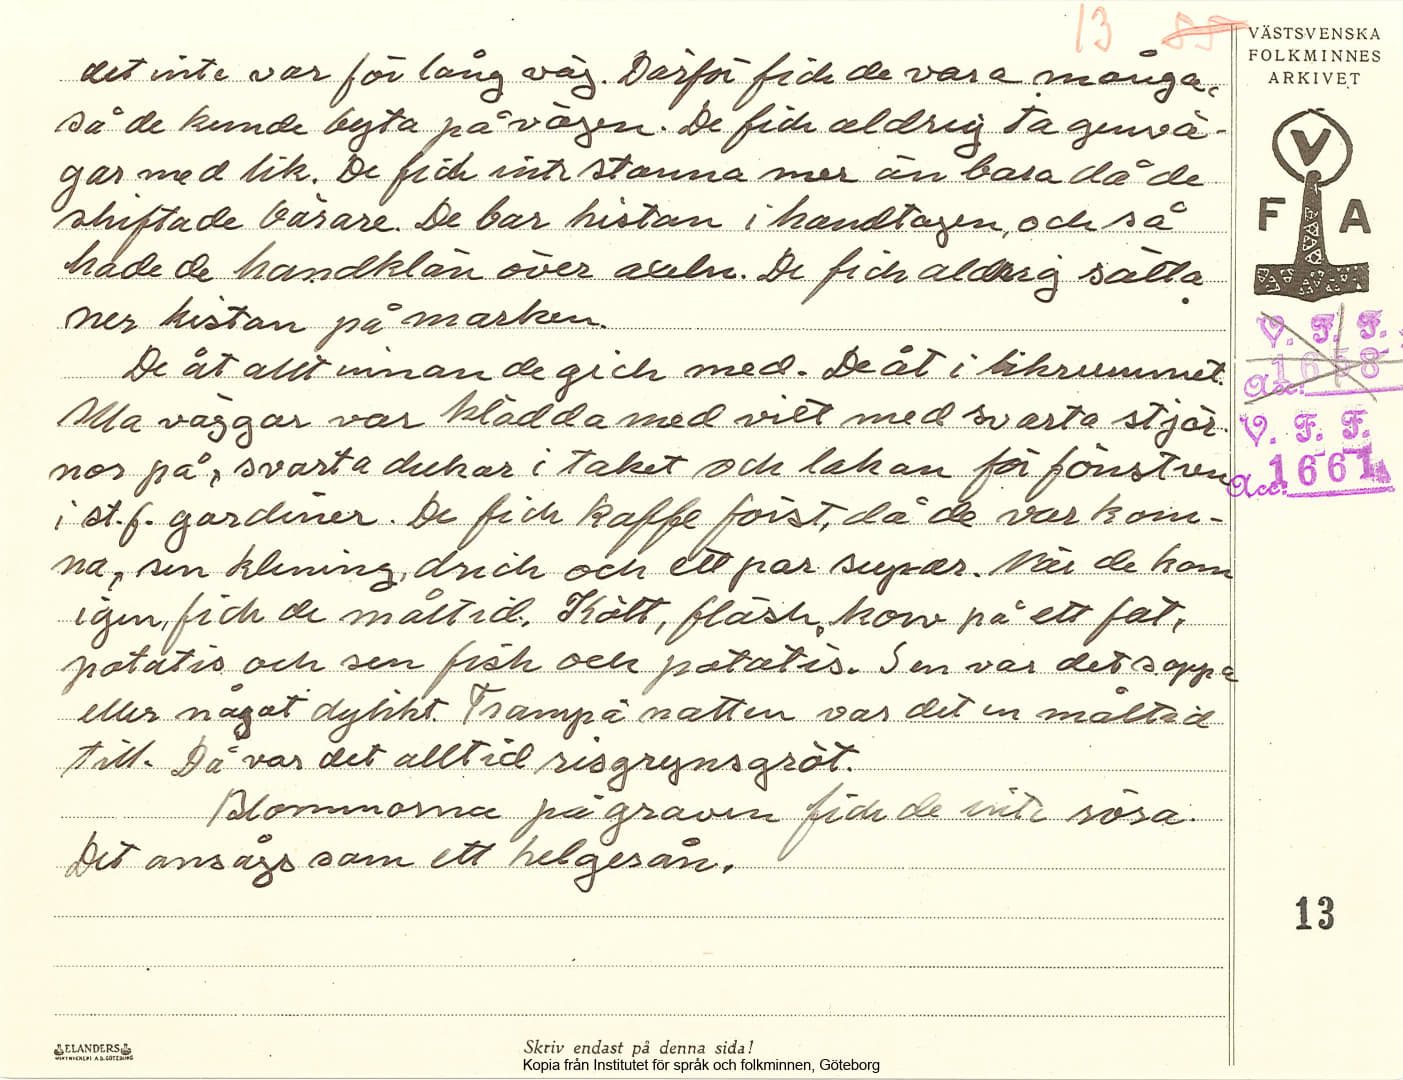 13 55
VÄSTSVENSKA
FOLKMINNES
ARKIVET
V
F A
V. F. F.
1658
Acc.
V. F. F.
Acc. 1661
det inte var för lång väg. Därför fick de vara många,
så de kunde byta på vägen. De fick aldrig ta genvä-
gar med lik. De fick inte stanna mer än bara då de
skiftade bärare. De bar kistan i handtagen, och så
hade de handklän över axeln. De fick aldrig sätta
ner kistan på marken.
De åt allt innan de gick med. De åt i likrummet.
Alla väggar var klädda med vitt med svarta stjär-
nor på, svarta dukar i taket och lakan för fönstren
i st. f. gardiner. De fick kaffe först, då de var kom-
na, sen klening, drick och ett par supar. När de kom
igen, fick de måltid. Kött, fläsk, korv på ett fat,
potatis och sen fisk och potatis. Sen var det soppa
eller något dylikt. Frampå natten var det en måltid
till. Då var det alltid risgrynsgröt.
Blommorna på graven fick de inte röra.
Det ansågs som ett helgerån.
13
ELANDERS
Skriv endast på denna sida!
Kopia från Institutet för språk och folkminnen, Göteborg